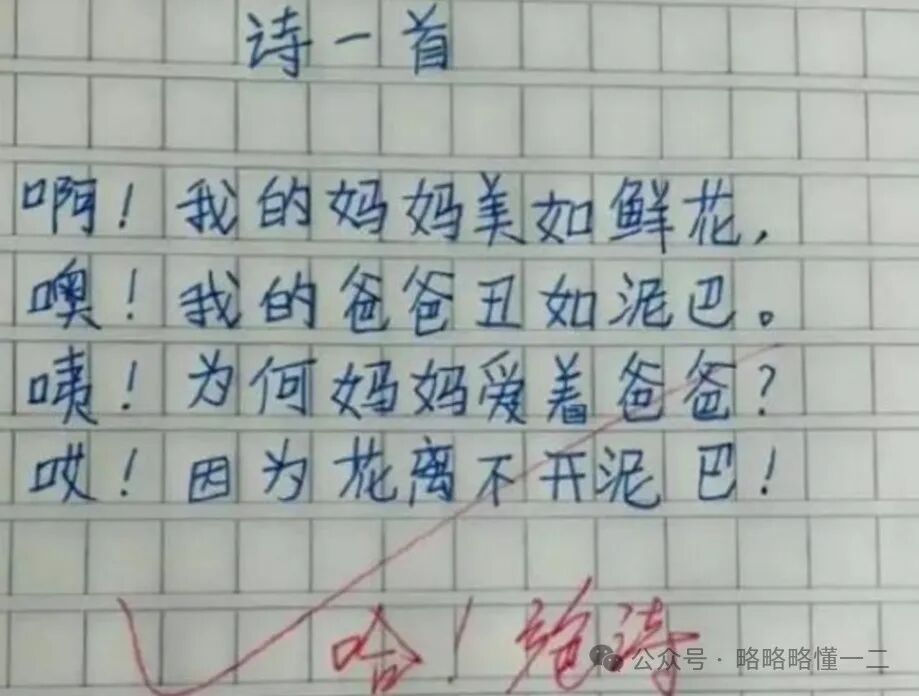 诗一首
啊！我的妈妈美如鲜花，
噢！我的爸爸丑如泥巴。
咦！为何妈妈爱着爸爸？
哎！因为花离不开泥巴！
哈！绝诗
公众号·略略略懂一二